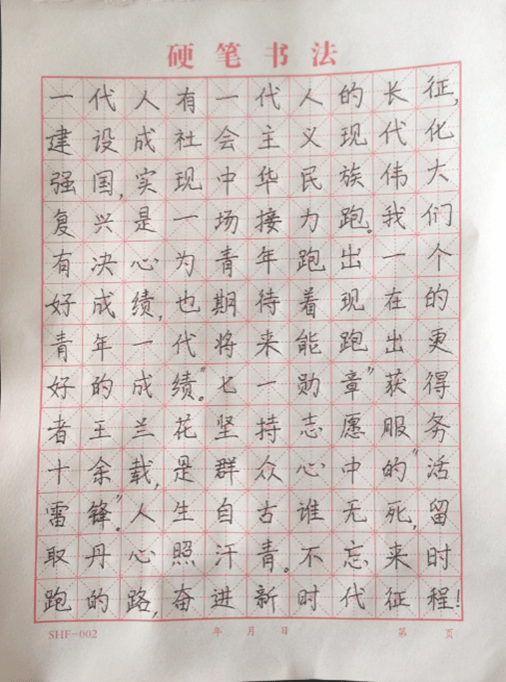 硬笔书法
一代人有一代人的长征,
建设成社会主义现代化
强国,实现中华民族伟大
复兴是一场接力跑。我们
有决心为青年跑出一个
好成绩,也期待着现在的
青年一代将来能跑出更
好的成绩”。七一勋章”获得
者王兰花坚持志愿服务
十余载,是群众心中的“活
雷锋”。人生自古谁无死,留
取丹心照汗青。不忘来时
跑的路,奋进新时代征程!
SHF-002 年 月 日 第 页